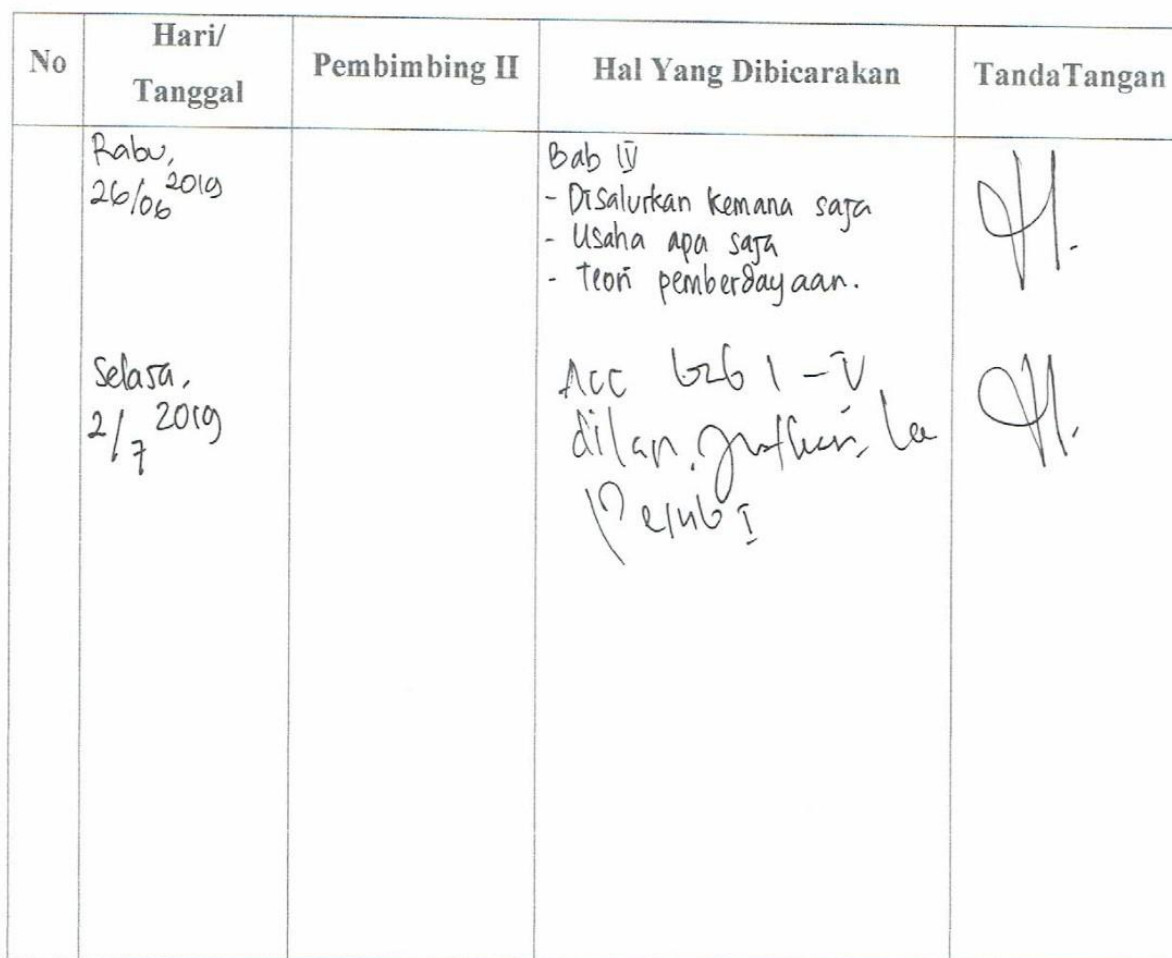 No
Hari/
Tanggal
Pembimbing II
Hal Yang Dibicarakan
TandaTangan
Rabu,
26/06 2019
Bab IV
- Disalurkan kemana saja
- Usaha apa saja
- Teori pemberdayaan.
Selasa,
2/7 2019
Acc bab I - V
Pemb I